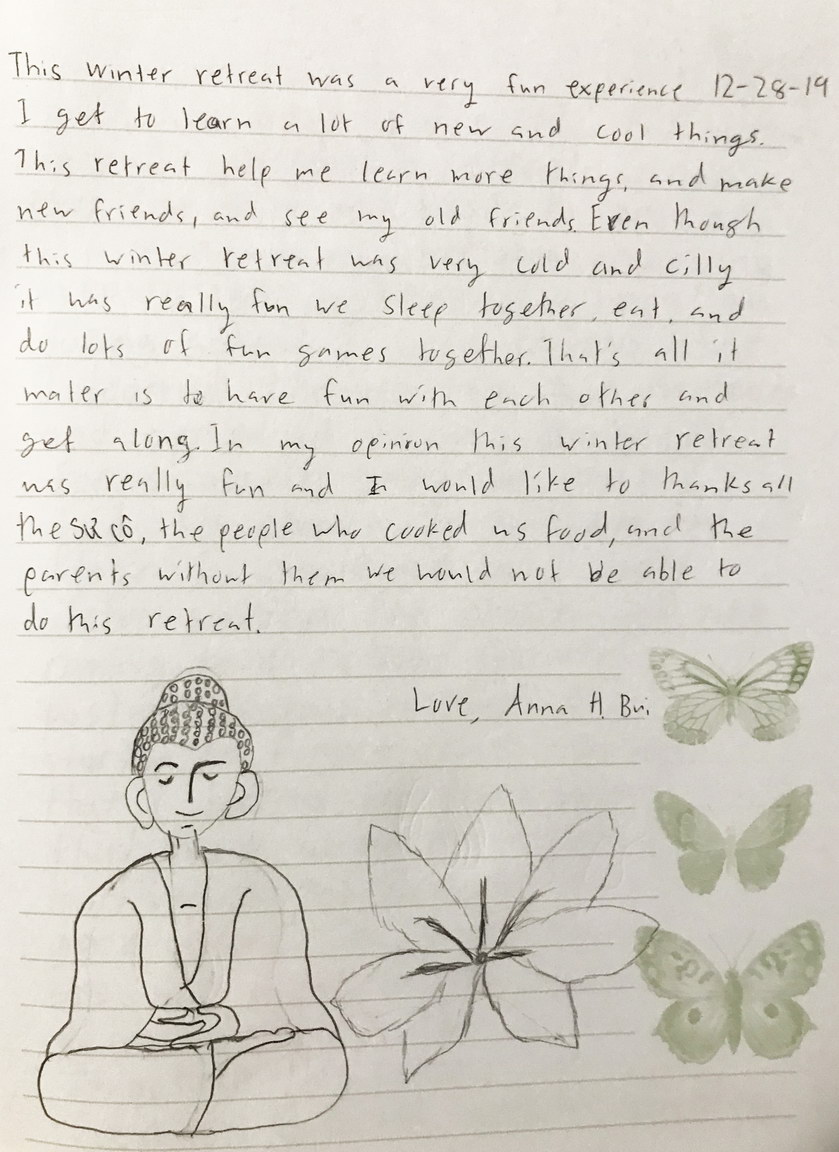 This winter retreat was a very fun experience 12-28-19
I get to learn a lot of new and cool things.
This retreat help me learn more things, and make
new friends, and see my old friends. Even though
this winter retreat was very cold and cilly
it was really fun we sleep together, eat, and
do lots of fun games together. That's all it
mater is to have fun with each other and
get along. In my opinion this winter retreat
was really fun and I would like to thanks all
the sư cô, the people who cooked us food, and the
parents without them we would not be able to
do this retreat.
Love, Anna H. Bui